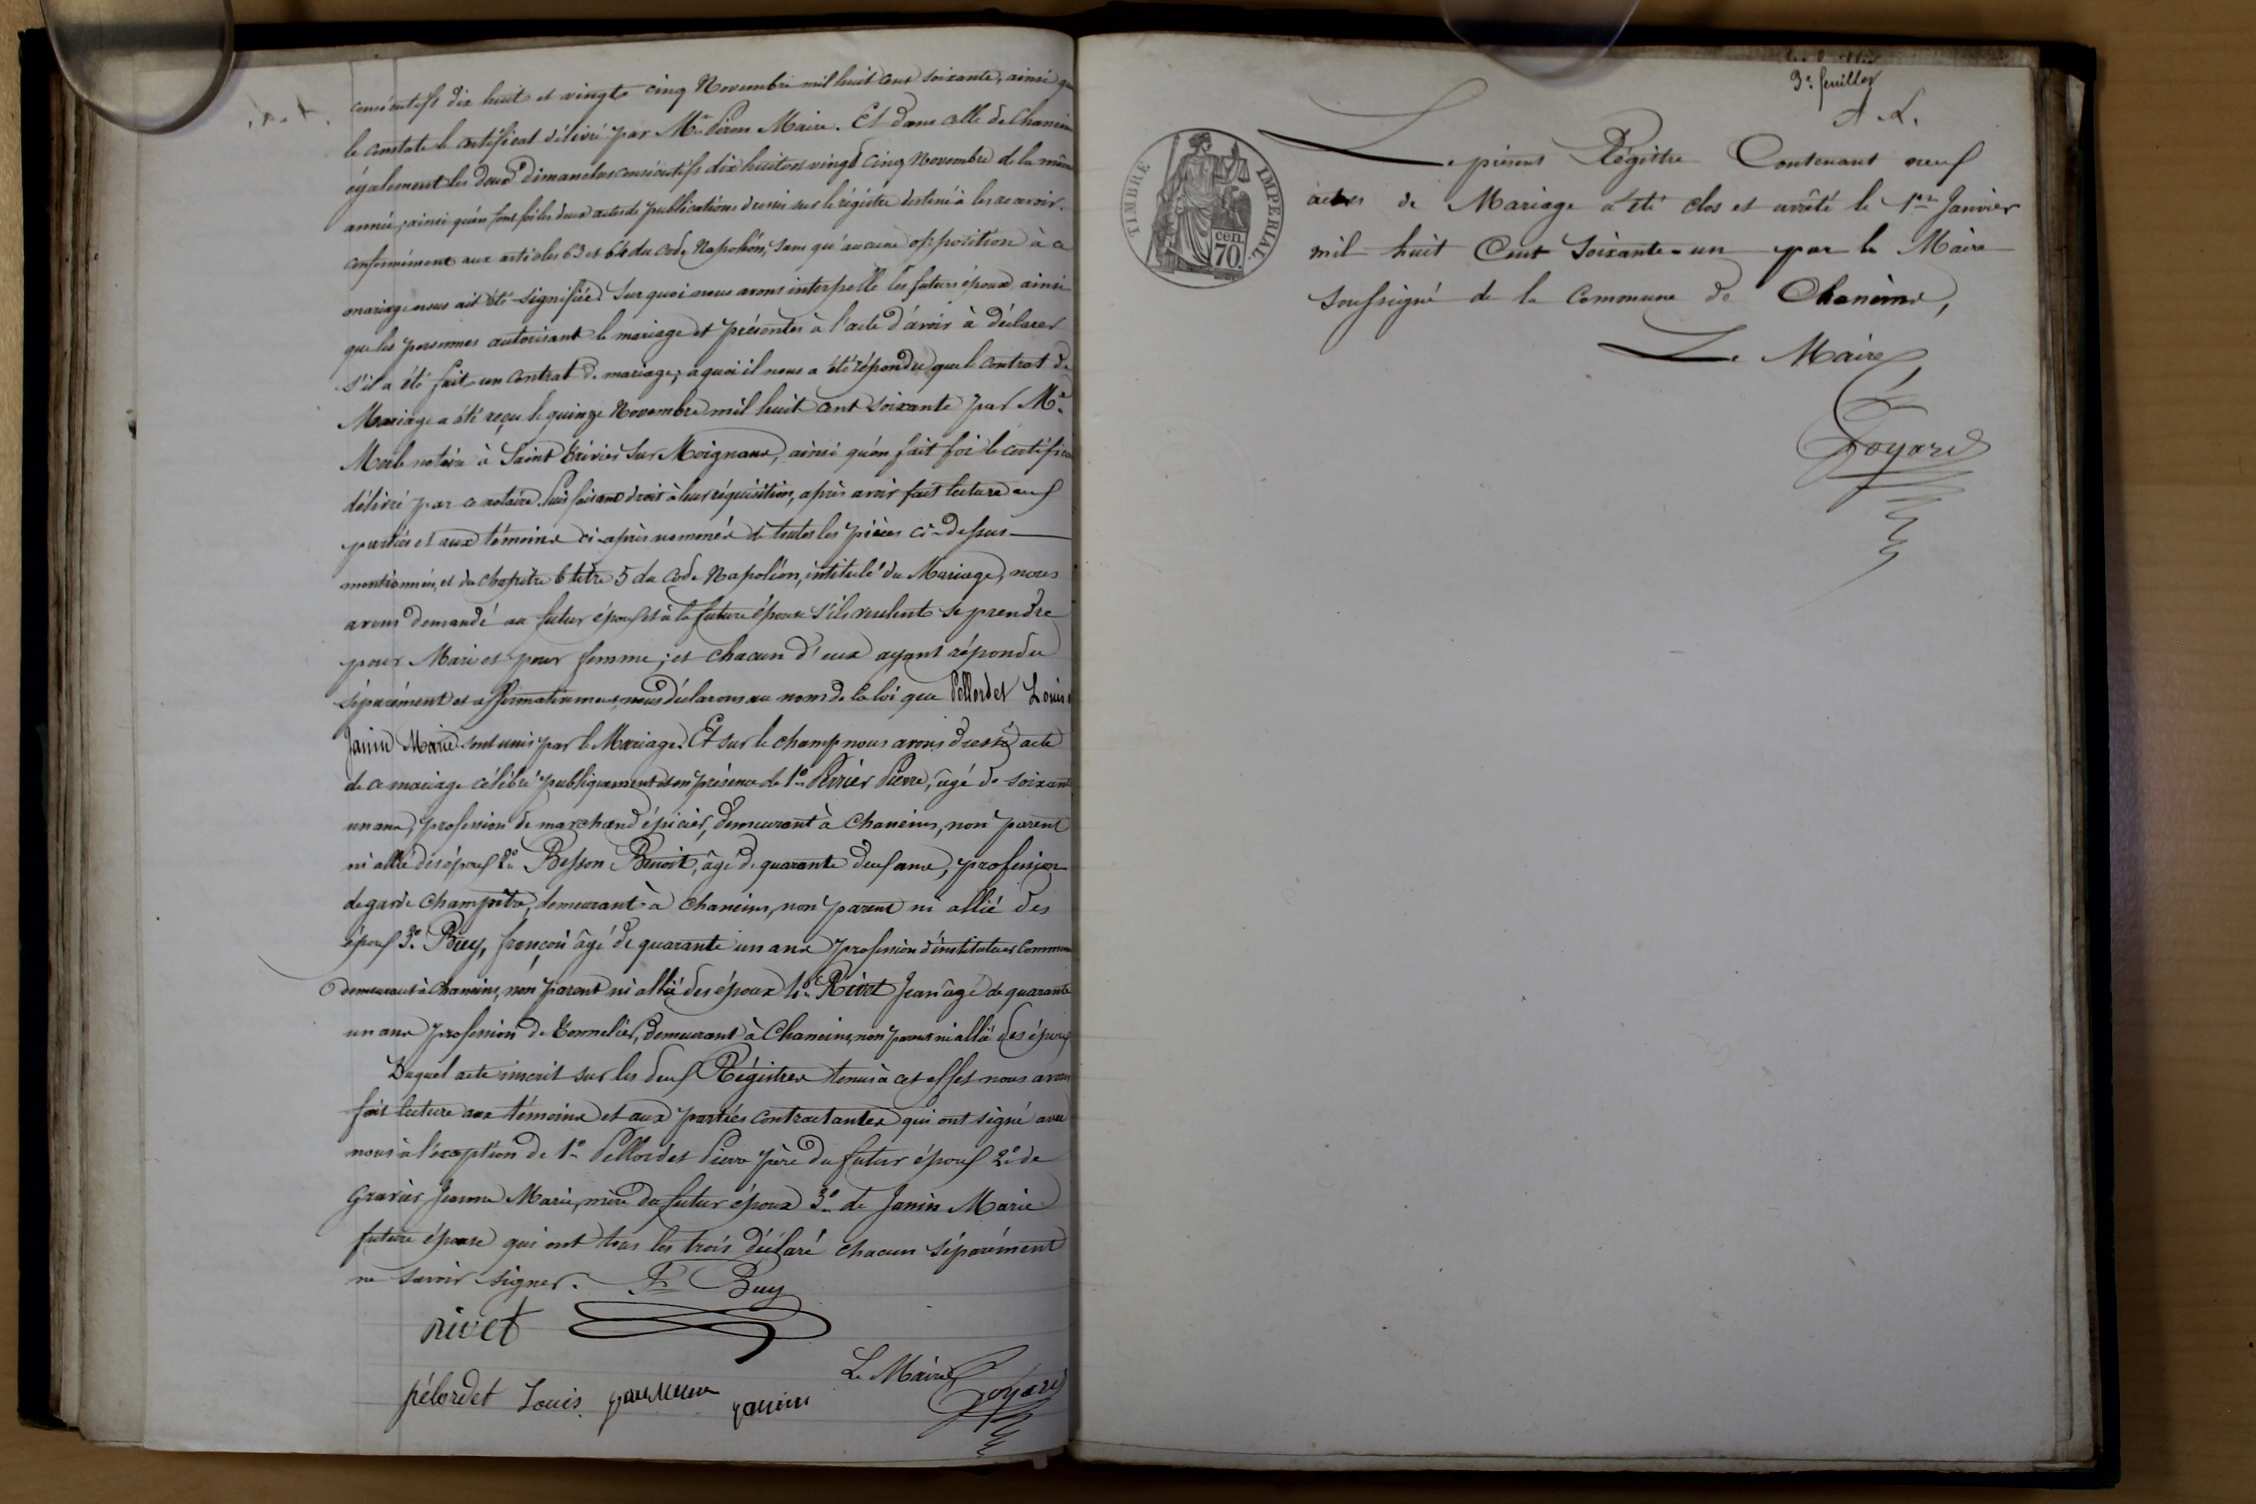 consécutifs dix huit et vingt cinq Novembre mil huit cent soixante, ainsi que
le constate le certificat délivré par Mr Maire. Et dans celle de Chaneins
également les deux dimanches consécutifs dix huit et vingt cinq Novembre de la même
année; ainsi qu'en font foi les deux actes de publications dressés sur le régistre destiné à les recevoir.
conformément aux articles 63 et 64 du Code Napoléon, sans qu'aucune opposition à ce
mariage nous ait été signifiée. Sur quoi nous avons interpellé les futurs époux ainsi
que les personnes autorisant le mariage et présentes à l'acte d'avoir à déclarer
s'il a été fait un contrat de mariage; a quoi il nous a été répondu que le contrat de
Mariage a été reçu le quinze Novembre mil huit cent soixante par Me
notaire à Saint Trivier Sur Moignans, ainsi qu'en fait foi le certificat
délivré par ce notaire. Puis faisant droit à leur réquisition, après avoir fait lecture aux
parties et aux témoins ci-après nommés de toutes les pièces ci-dessus
mentionnées, et du chapitre 6 titre 5 du Code Napoléon, intitulé du Mariage, nous
avons demandé au futur époux et à la future épouse s'ils veulent se prendre
pour Mari et pour femme; et chacun d'eux ayant répondu
séparément et affirmativement, nous déclarons au nom de la loi que Pellordet Louis
Janin Marie sont unis par le Mariage. Et sur le champ nous avons dressé acte
de ce mariage célébré publiquement et en présence de 1º Perrier Pierre, âgé de soixante
un ans, profession de marchand épicier, demeurant à Chaneins, non parent
ni allié des époux 2º Besson Benoit, âgé de quarante deux ans, profession
de garde champêtre, demeurant à Chaneins, non parent ni allié des
époux 3º Buy, françois âgé de quarante un ans profession d'instituteur communal
demeurant à Chaneins, non parent ni allié des époux 4º Rivet Jean âgé de quarante
un ans profession de Tonnelier, demeurant à Chaneins, non parent ni allié des époux
Duquel acte inscrit sur les deux Régistres tenus à cet effet nous avons
fait lecture aux témoins et aux parties contractantes qui ont signé avec
nous à l'éxception de 1º Pellordet Pierre père du futur époux 2º de
Gravier Jeanne Marie, mère du futur époux 3º de Janin Marie
future épouse qui ont tous les trois déclaré chacun séparément
ne savoir signer. Buy
rivet
Le Maire Goyard
pélordet Louis janin
3e feuillet
A. L.
TIMBRE IMPERIAL
70 cen.
Le présent Régistre Contenant neuf
actes de Mariage a été clos et arrêté le 1er Janvier
mil huit Cent Soixante-un par le Maire
soussigné de la Commune de Chaneins,
Le Maire
Goyard